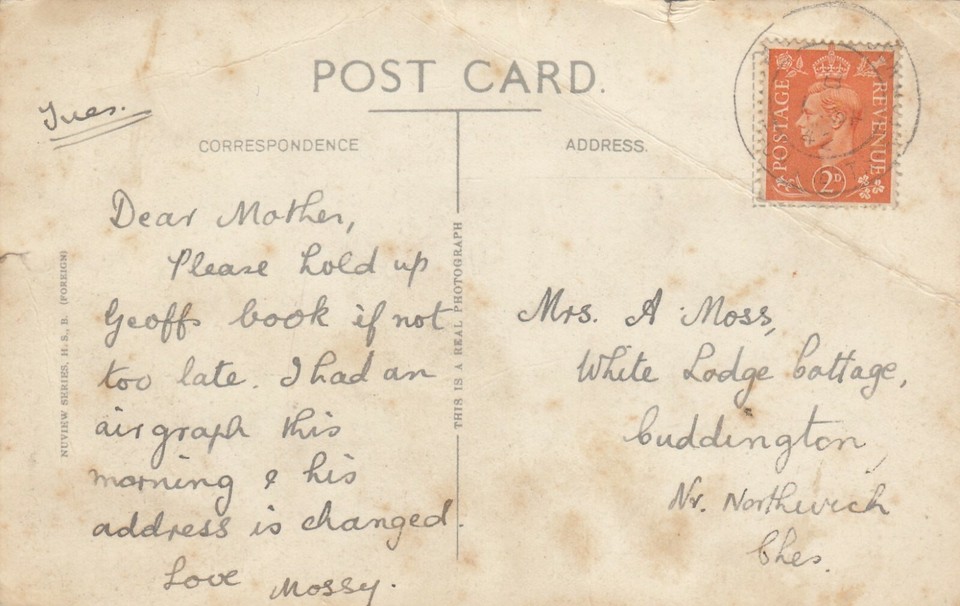 POST CARD.
Tues.
CORRESPONDENCE
ADDRESS.
POSTAGE
REVENUE
2D
Dear Mother,
Please hold up
Geoffs book if not
too late. I had an
airgraph this
morning & his
address is changed.
Love Mossy.
NUVIEW SERIES, H. S., B. (FOREIGN)
THIS IS A REAL PHOTOGRAPH
Mrs. A. Moss,
White Lodge Cottage,
Cuddington,
Nr. Northwich
Ches.